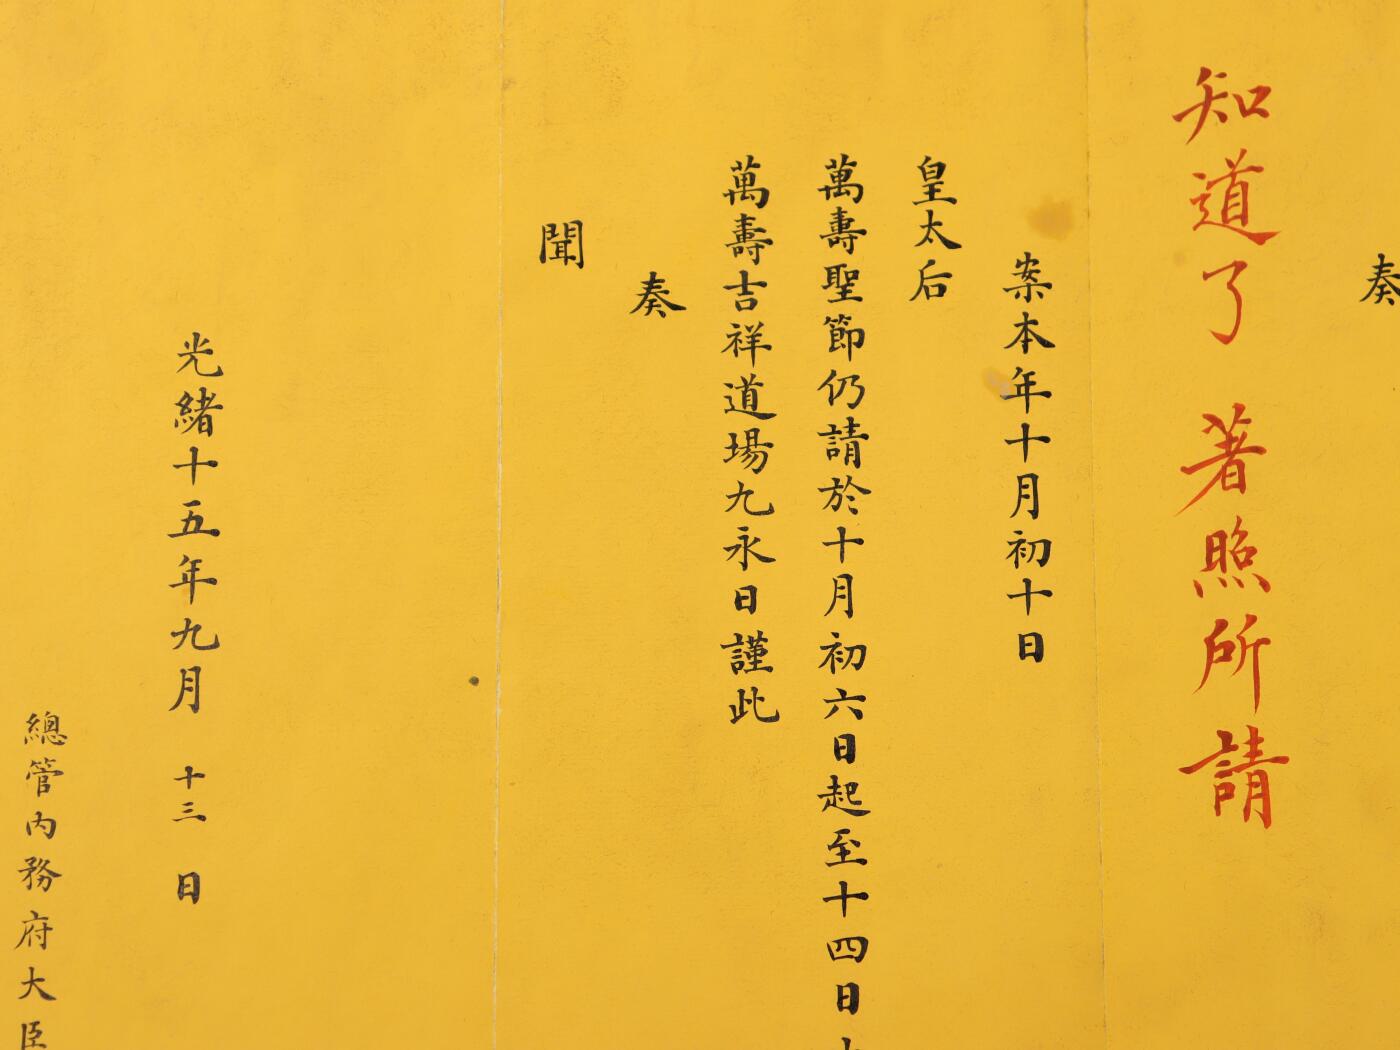 奏
知道了 著照所請
案本年十月初十日
皇太后
萬壽聖節仍請於十月初六日起至十四日
萬壽吉祥道場九永日謹此
奏
聞
光緒十五年九月 十三 日
總管內務府大臣